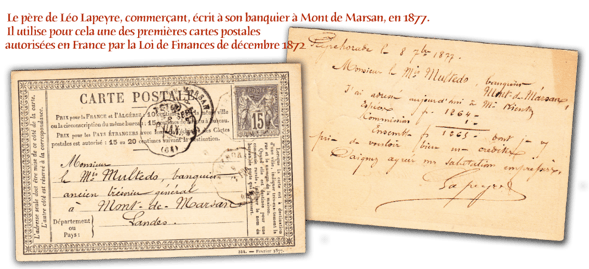 Le père de Léo Lapeyre, commerçant, écrit à son banquier à Mont de Marsan, en 1877.
Il utilise pour cela une des premières cartes postales
autorisées en France par la Loi de Finances de décembre 1872
CARTE POSTALE
Prix pour la France et l'Algérie
Prix pour les Pays étrangers avec
postales est autorisé : 15 ou 20 centimes suivant le
15
Monsieur
le Mis Multedo, banquier
ancien trésorier général
à Mont-de-Marsan
Landes.
Département
ou
Pays:
L'adresse seule doit être mise de ce côté de la carte.
L'autre côté est réservé à la correspondance.
Février 1877.
Peyrehorade le 8 7bre 1877.
Monsieur le Mis Multedo, banquier
Mont de Marsan,
J'ai adressé aujourd'hui à Mr
Espèces f. 1264
Ensemble f. 1265 dont je vs
prie de vouloir bien me créditer
Daignez agréer ma salutation empressée
Lapeyre